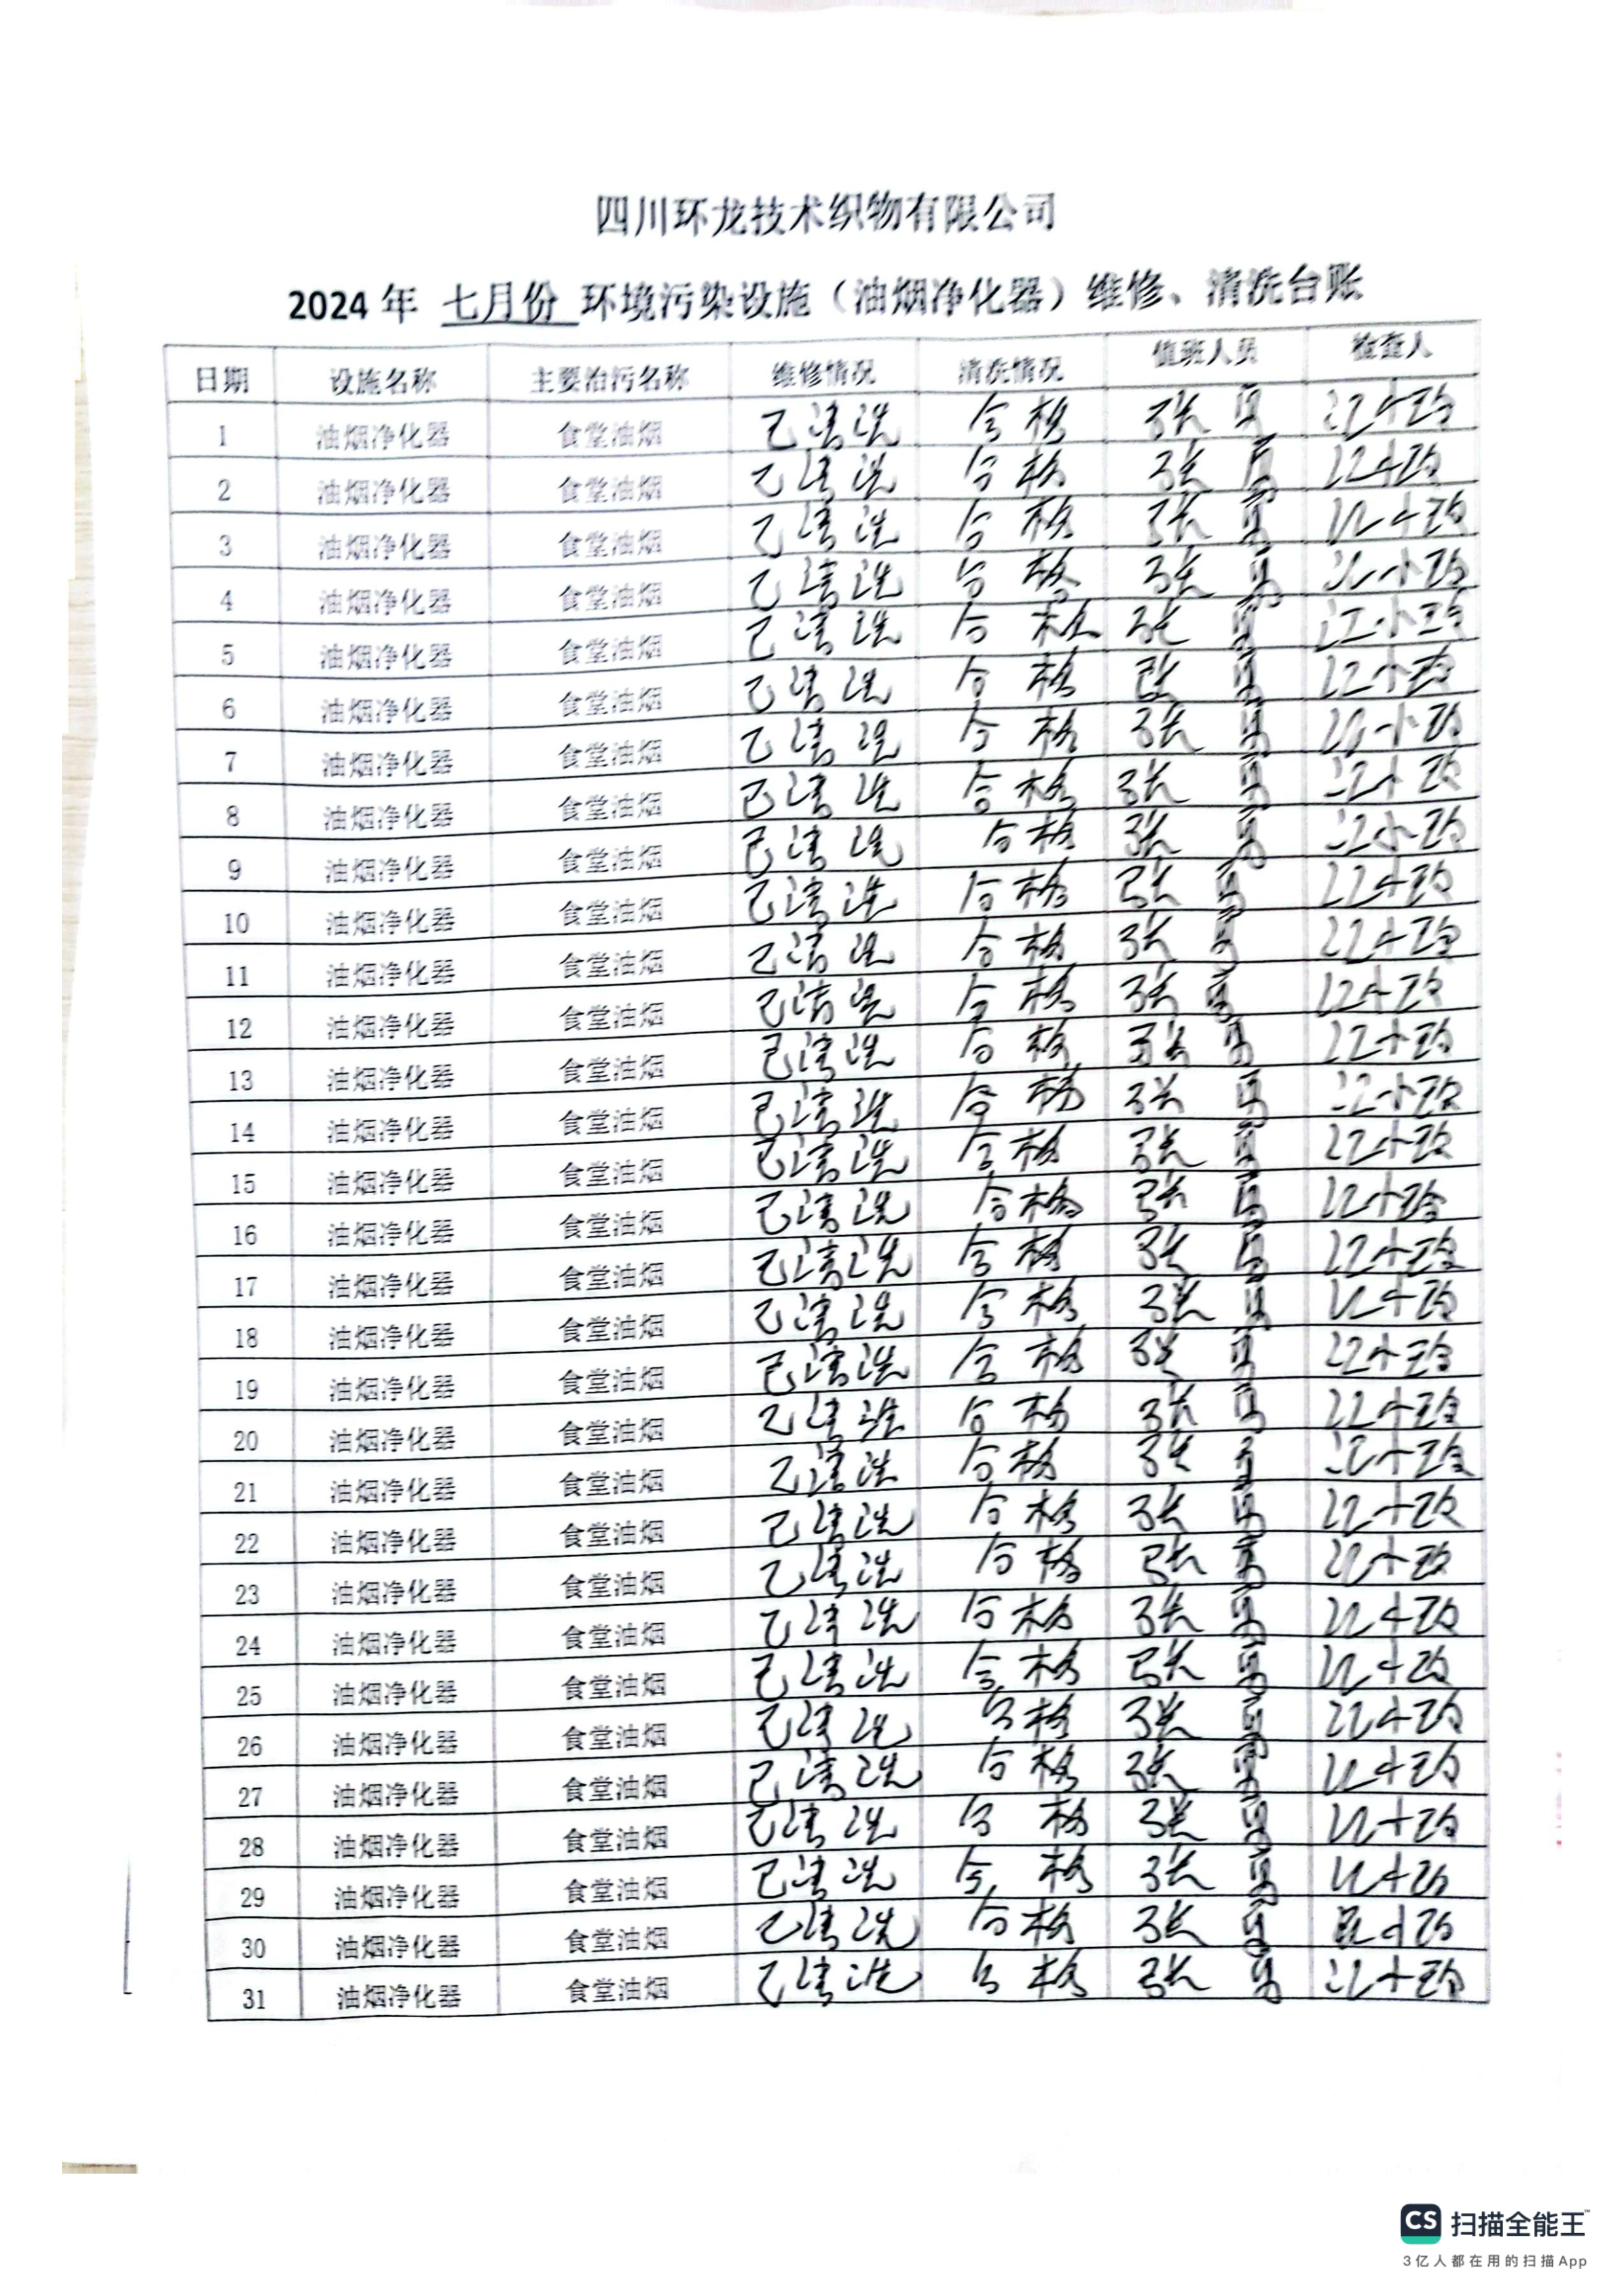 四川环龙技术织物有限公司
2024 年 七月份 环境污染设施（油烟净化器）维修、清洗台账
日期 设施名称 主要治污名称 维修情况 清洗情况 值班人员 检查人
1 油烟净化器 食堂油烟 已清洗 合格 张 江小玲
2 油烟净化器 食堂油烟 已清洗 合格 张 江小玲
3 油烟净化器 食堂油烟 已清洗 合格 张 江小玲
4 油烟净化器 食堂油烟 已清洗 合格 张 江小玲
5 油烟净化器 食堂油烟 已清洗 合格 张 江小玲
6 油烟净化器 食堂油烟 已清洗 合格 张 江小玲
7 油烟净化器 食堂油烟 已清洗 合格 张 江小玲
8 油烟净化器 食堂油烟 已清洗 合格 张 江小玲
9 油烟净化器 食堂油烟 已清洗 合格 张 江小玲
10 油烟净化器 食堂油烟 已清洗 合格 张 江小玲
11 油烟净化器 食堂油烟 已清洗 合格 张 江小玲
12 油烟净化器 食堂油烟 已清洗 合格 张 江小玲
13 油烟净化器 食堂油烟 已清洗 合格 张 江小玲
14 油烟净化器 食堂油烟 已清洗 合格 张 江小玲
15 油烟净化器 食堂油烟 已清洗 合格 张 江小玲
16 油烟净化器 食堂油烟 已清洗 合格 张 江小玲
17 油烟净化器 食堂油烟 已清洗 合格 张 江小玲
18 油烟净化器 食堂油烟 已清洗 合格 张 江小玲
19 油烟净化器 食堂油烟 已清洗 合格 张 江小玲
20 油烟净化器 食堂油烟 已清洗 合格 张 江小玲
21 油烟净化器 食堂油烟 已清洗 合格 张 江小玲
22 油烟净化器 食堂油烟 已清洗 合格 张 江小玲
23 油烟净化器 食堂油烟 已清洗 合格 张 江小玲
24 油烟净化器 食堂油烟 已清洗 合格 张 江小玲
25 油烟净化器 食堂油烟 已清洗 合格 张 江小玲
26 油烟净化器 食堂油烟 已清洗 合格 张 江小玲
27 油烟净化器 食堂油烟 已清洗 合格 张 江小玲
28 油烟净化器 食堂油烟 已清洗 合格 张 江小玲
29 油烟净化器 食堂油烟 已清洗 合格 张 江小玲
30 油烟净化器 食堂油烟 已清洗 合格 张 江小玲
31 油烟净化器 食堂油烟 已清洗 合格 张 江小玲
CS 扫描全能王™
3亿人都在用的扫描App